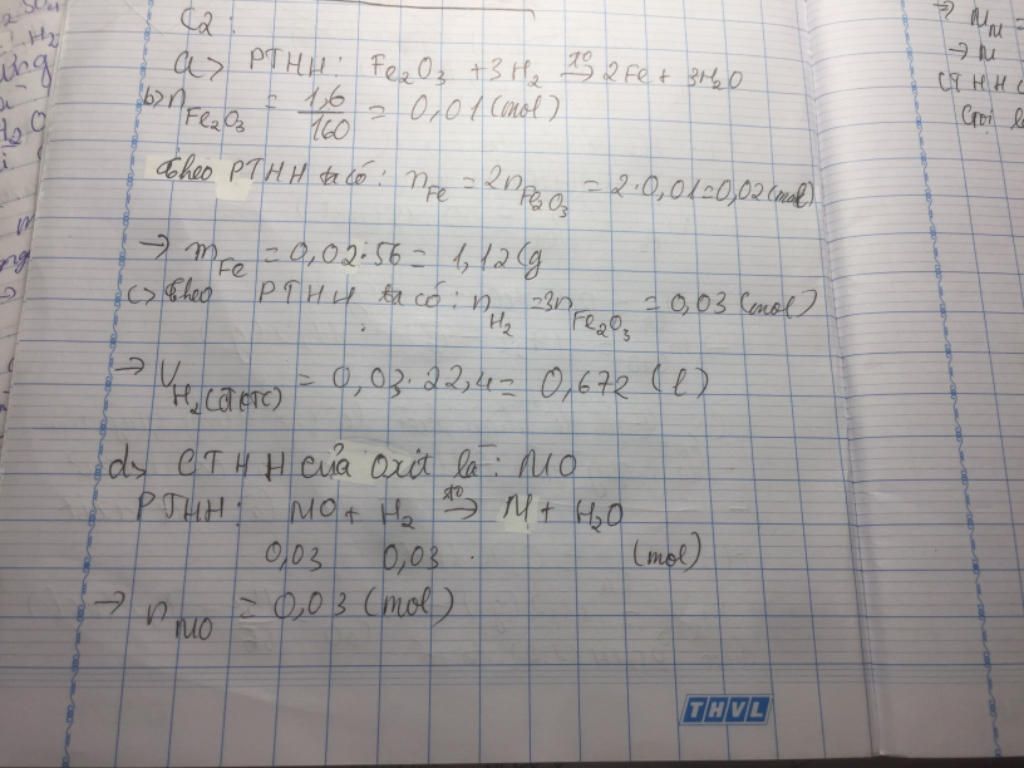 C2:
a> PTHH: Fe2O3 + 3H2 t0→ 2Fe + 3H2O
b> nFe2O3 = 1,6/160 = 0,01 (mol)
theo PTHH ta có: nFe = 2nFe2O3 = 2.0,01=0,02(mol)
→ mFe = 0,02.56 = 1,12(g
c> theo PTHH ta có: nH2 =3nFe2O3 = 0,03 (mol)
→ VH2(đktc) = 0,03.22,4= 0,672 (l)
d> CTHH của oxit là: MO
PTHH: MO + H2 t0→ M + H2O
0,03 0,03 (mol)
→ nMO = 0,03 (mol)
THVL